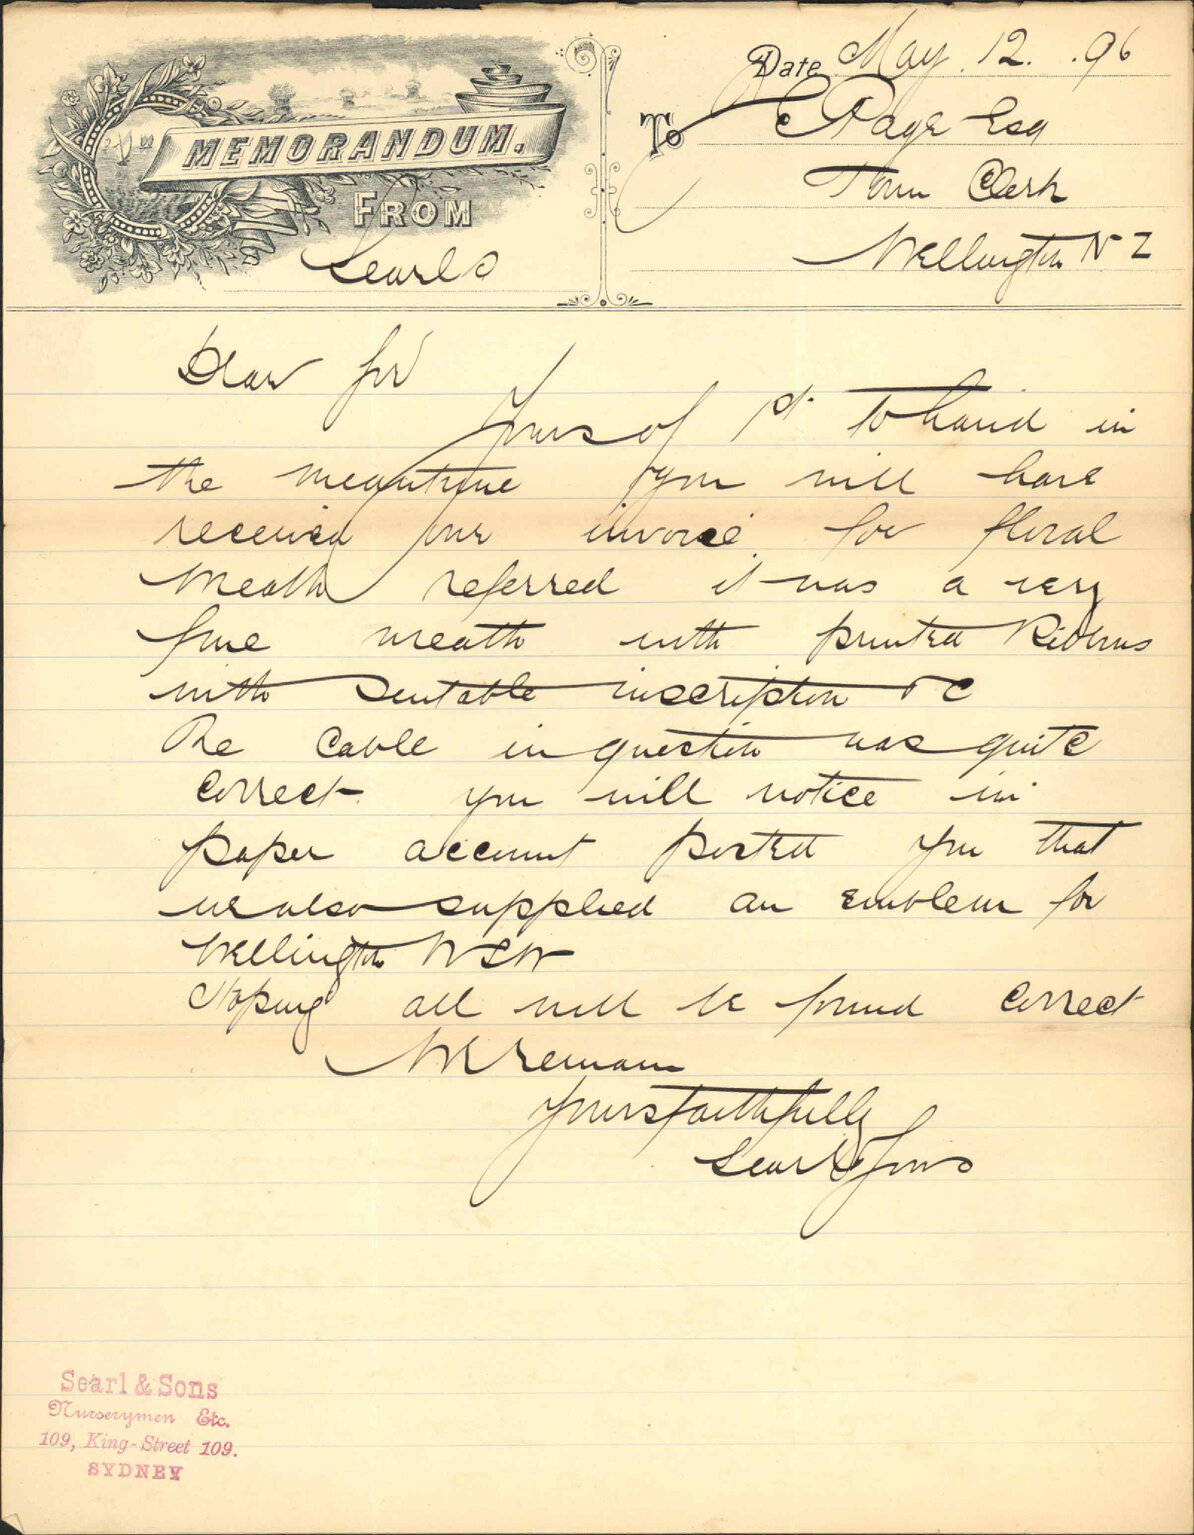 MEMORANDUM.
FROM
Searls
Date May 12. .96
To C Page Esq
Town Clerk
Wellington N Z
Dear Sir
Yours of 1st. to hand in
the meantime you will have
received our invoice for floral
Wreath referred it was a very
fine wreath with printed Ribbons
with suitable inscription &c
The cable in question was quite
correct. you will notice in
paper account posted you that
we also supplied an emblem for
Wellington NSW
Hoping all will be found correct
We remain
Yours faithfully
Searl & Sons
Searl & Sons
Nurserymen Etc.
109, King-Street 109.
SYDNEY